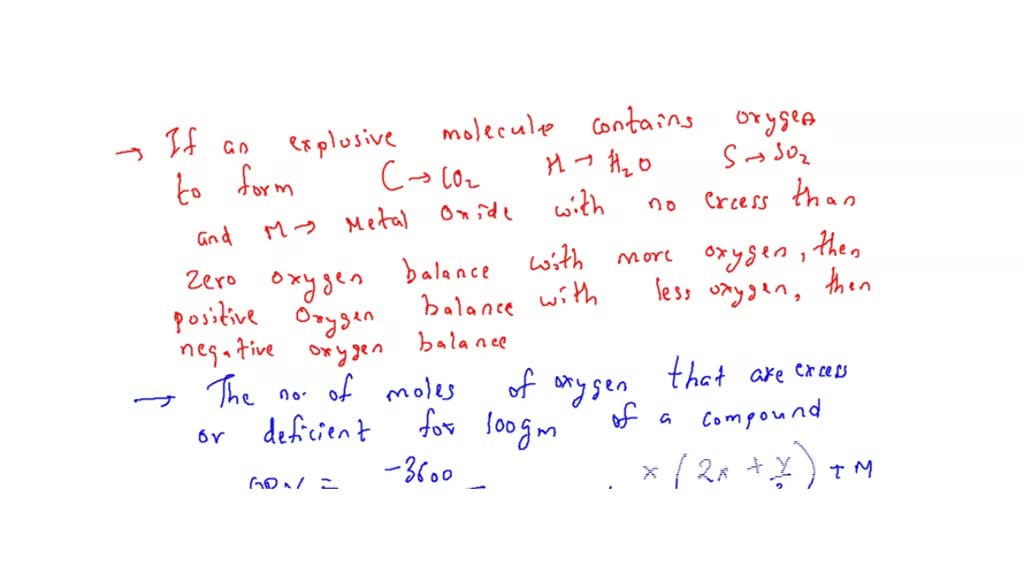 → If an explosive molecule contains oxygen
to form C → CO2 H → H2O S → SO2
and M → Metal Oxide with no excess than
zero oxygen balance with more oxygen, then
positive Oxygen balance with less oxygen, then
negative oxygen balance
→ The no. of moles of oxygen that are excess
or deficient for 100gm of a compound
= -3600 x (2x + y/2) + M